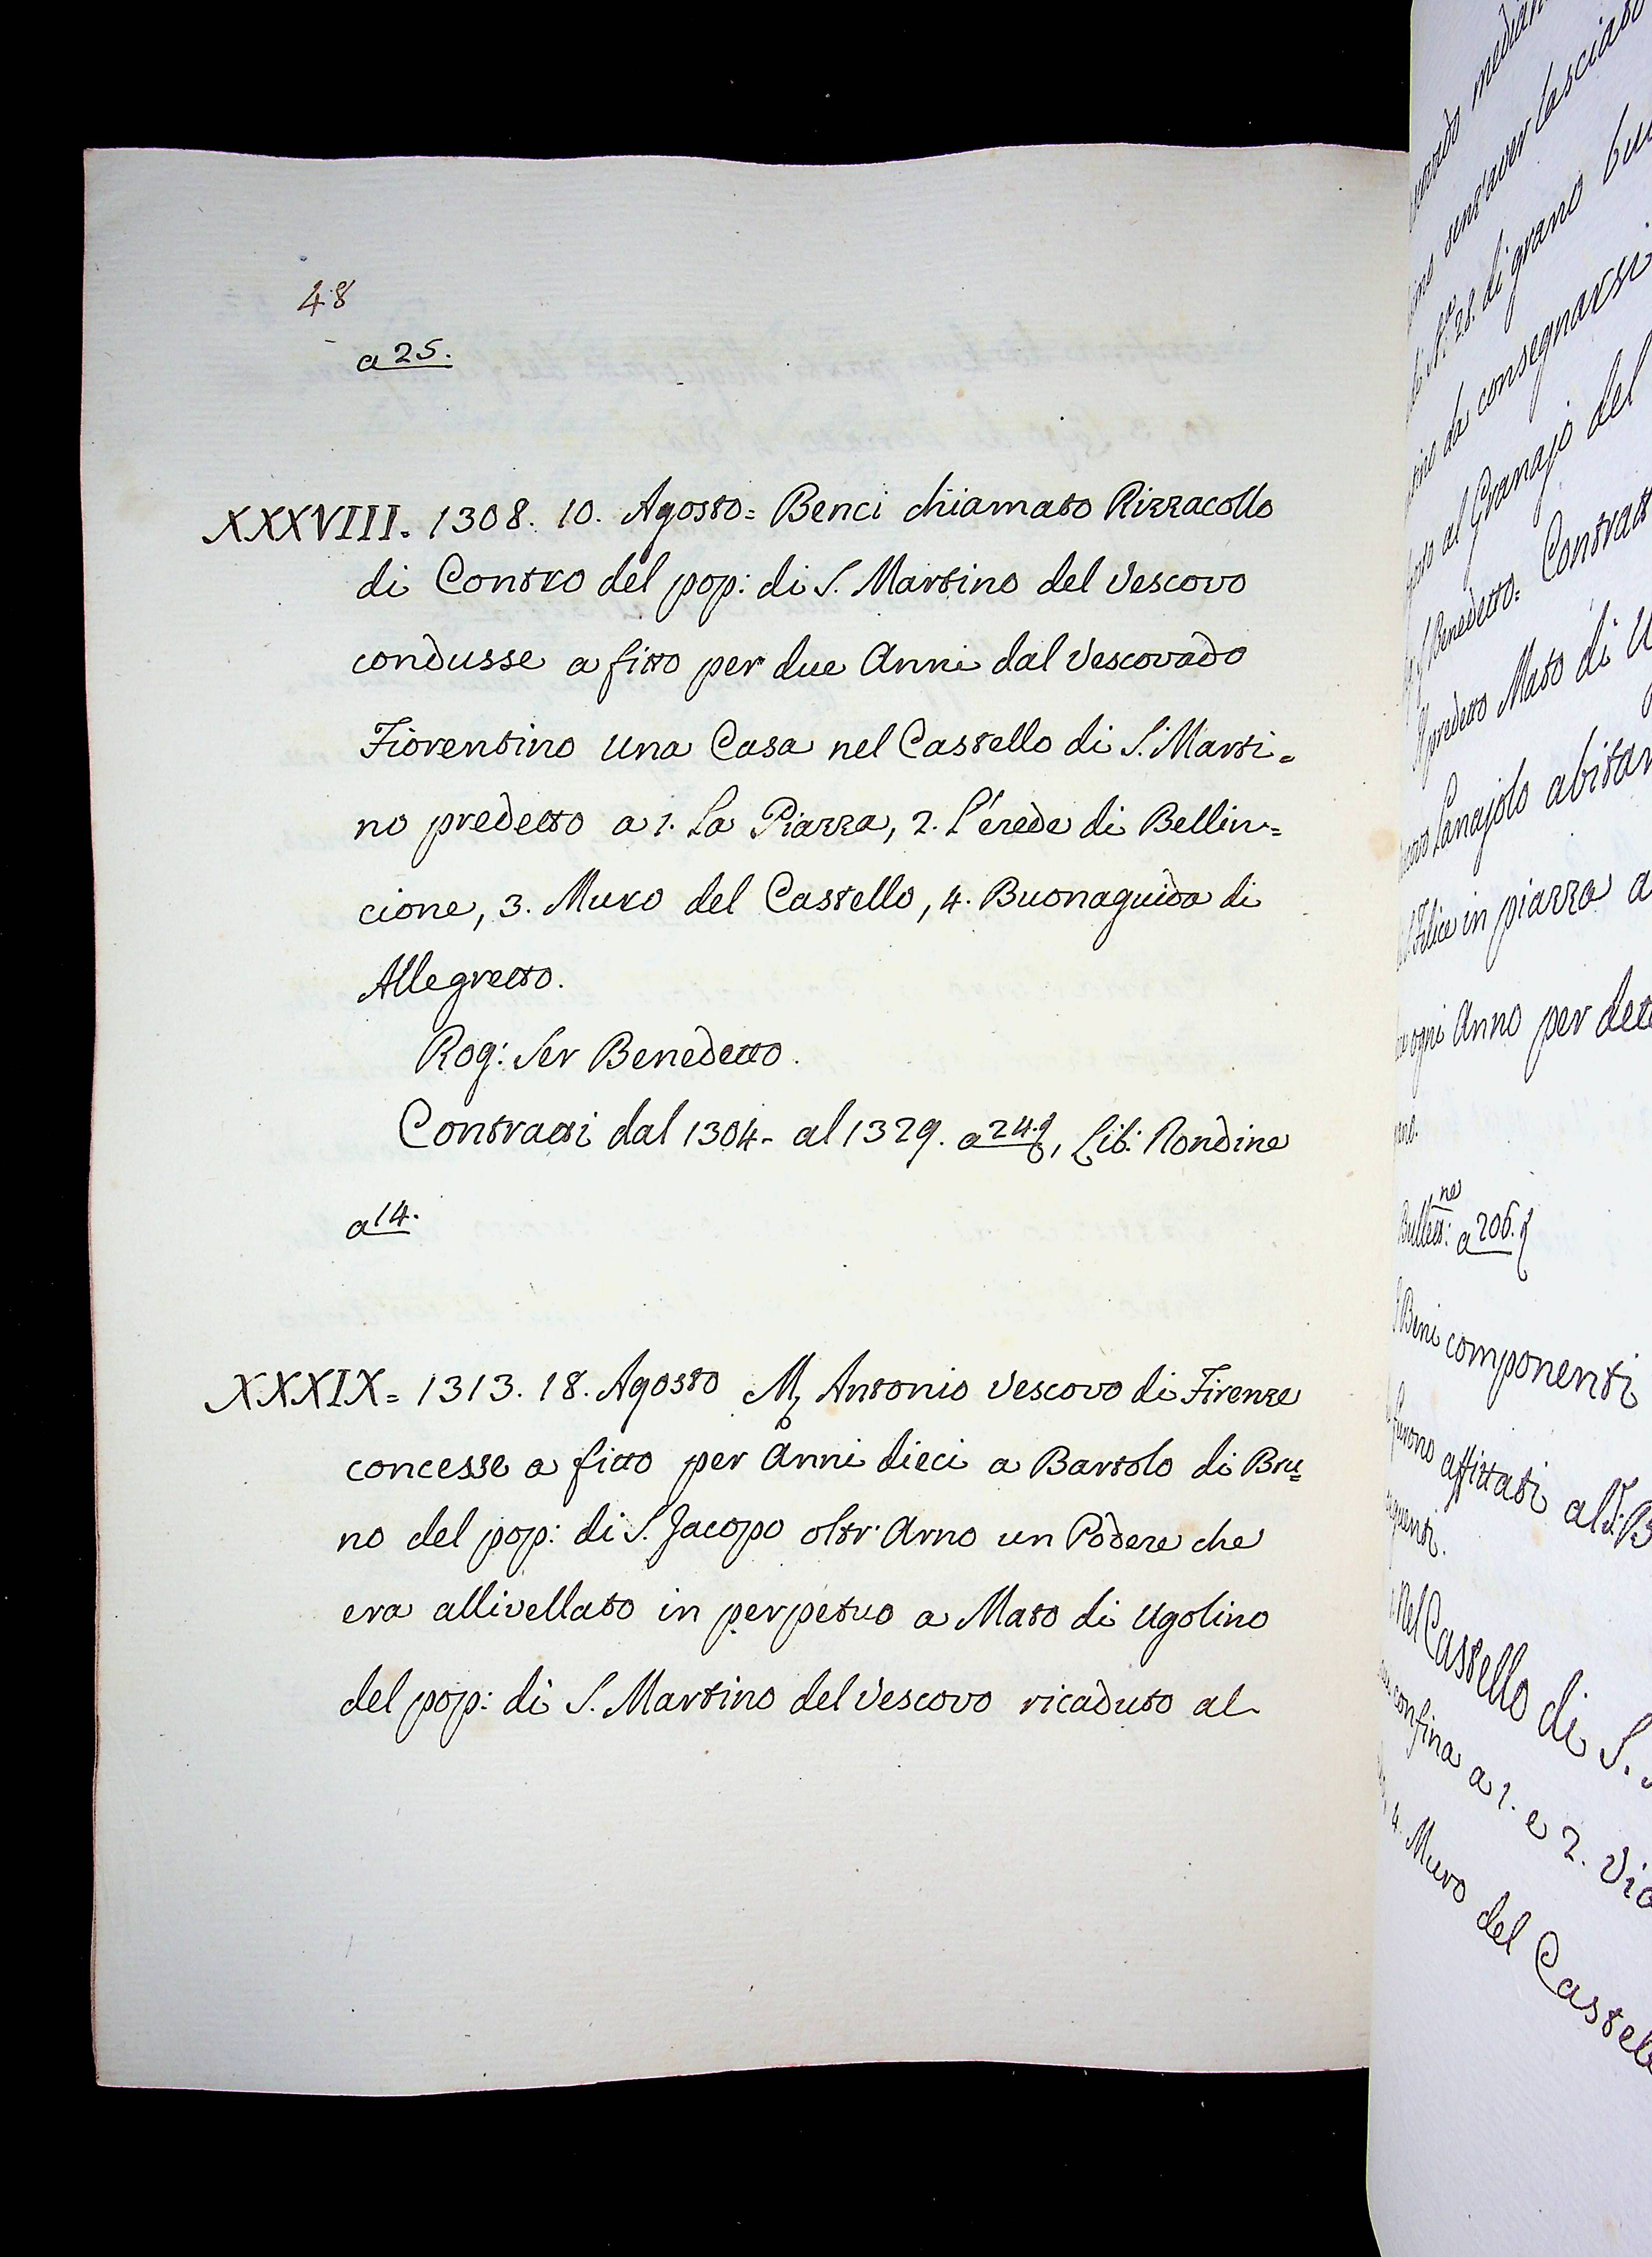 48
a 25.
XXXVIII. 1308. 10. Agosto= Benci chiamato Pizzacollo
di Contro del pop: di S. Martino del Vescovo
condusse a fitto per due Anni dal Vescovado
Fiorentino una Casa nel Castello di S. Marti=
no predetto a 1. La Piazza, 2. L'erede di Bellin=
cione, 3. Muro del Castello, 4. Buonaguida di
Allegretto.
Rog: Ser Benedetto.
Contratti dal 1304. al 1329. a 24. , Lib: Rondine
a 14.
XXXIX= 1313. 18. Agosto M, Antonio Vescovo di Firenze
concesse a fitto per Anni dieci a Bartolo di Bru=
no del pop: di S. Jacopo oltr'Arno un Podere che
era allivellato in perpetuo a Mato di Ugolino
del pop: di S. Martino del Vescovo ricaduto al
lasciato
28. di grano
da consegnarsi
al Granajo del
Benedetto=
predetto Mato di
Lanajolo
in piazza a
ogni Anno per
a 206.
Beni componenti
furono affittati al
Nel Castello di S.
confina a 1. e 2.
4. Muro del